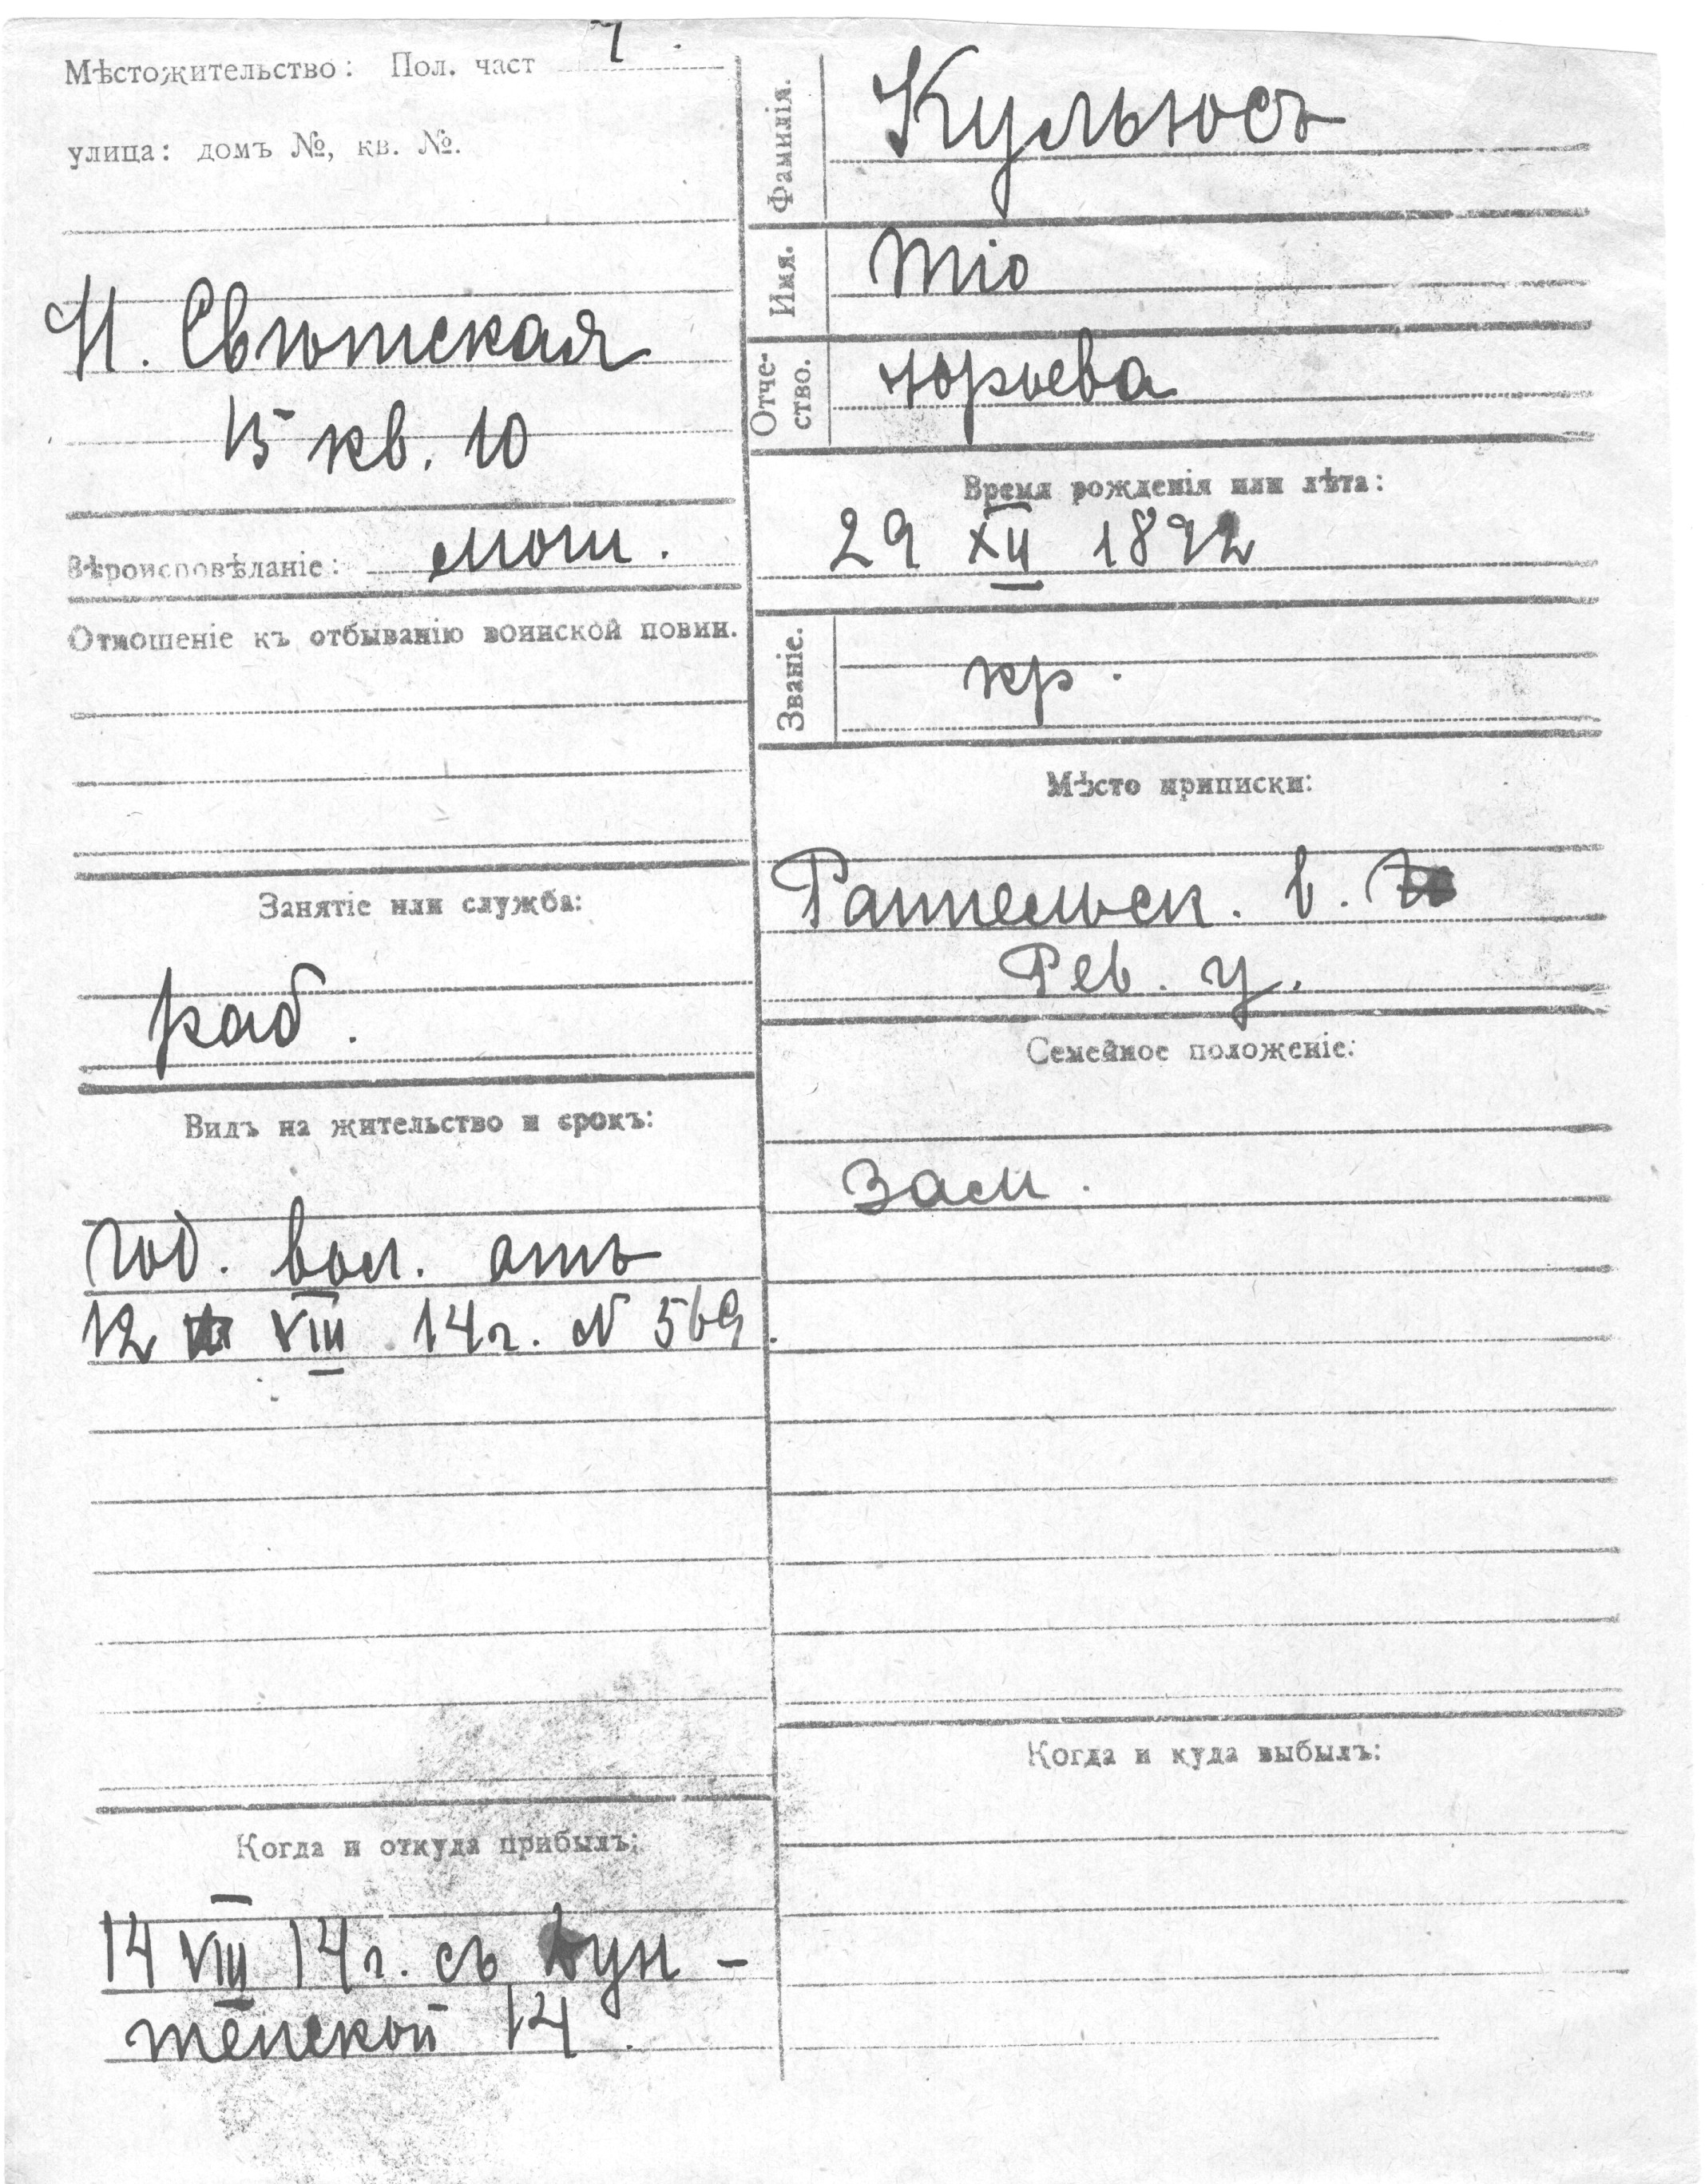 Мѣстожительство: Пол. част 7.
улица: домъ №, кв. №.
Н. Свѣтская
15 кв. 10
Вѣроисповѣданіе: лют.
Отношеніе къ отбыванію воинской повин.
Занятіе или служба:
раб.
Видъ на жительство и срокъ:
год. вол. отъ
12 VIII 14 г. № 569.
Когда и откуда прибылъ:
14 VIII 14 г. съ
14.
Фамилія. Кульюсъ
Имя. Тіо
Отче-
ство. Юрьева
Время рожденія или лѣта:
29 XII 1892
Званіе. кр.
Мѣсто приписки:
Раппельск. в.
Рев. у.
Семейное положеніе:
зам.
Когда и куда выбылъ: